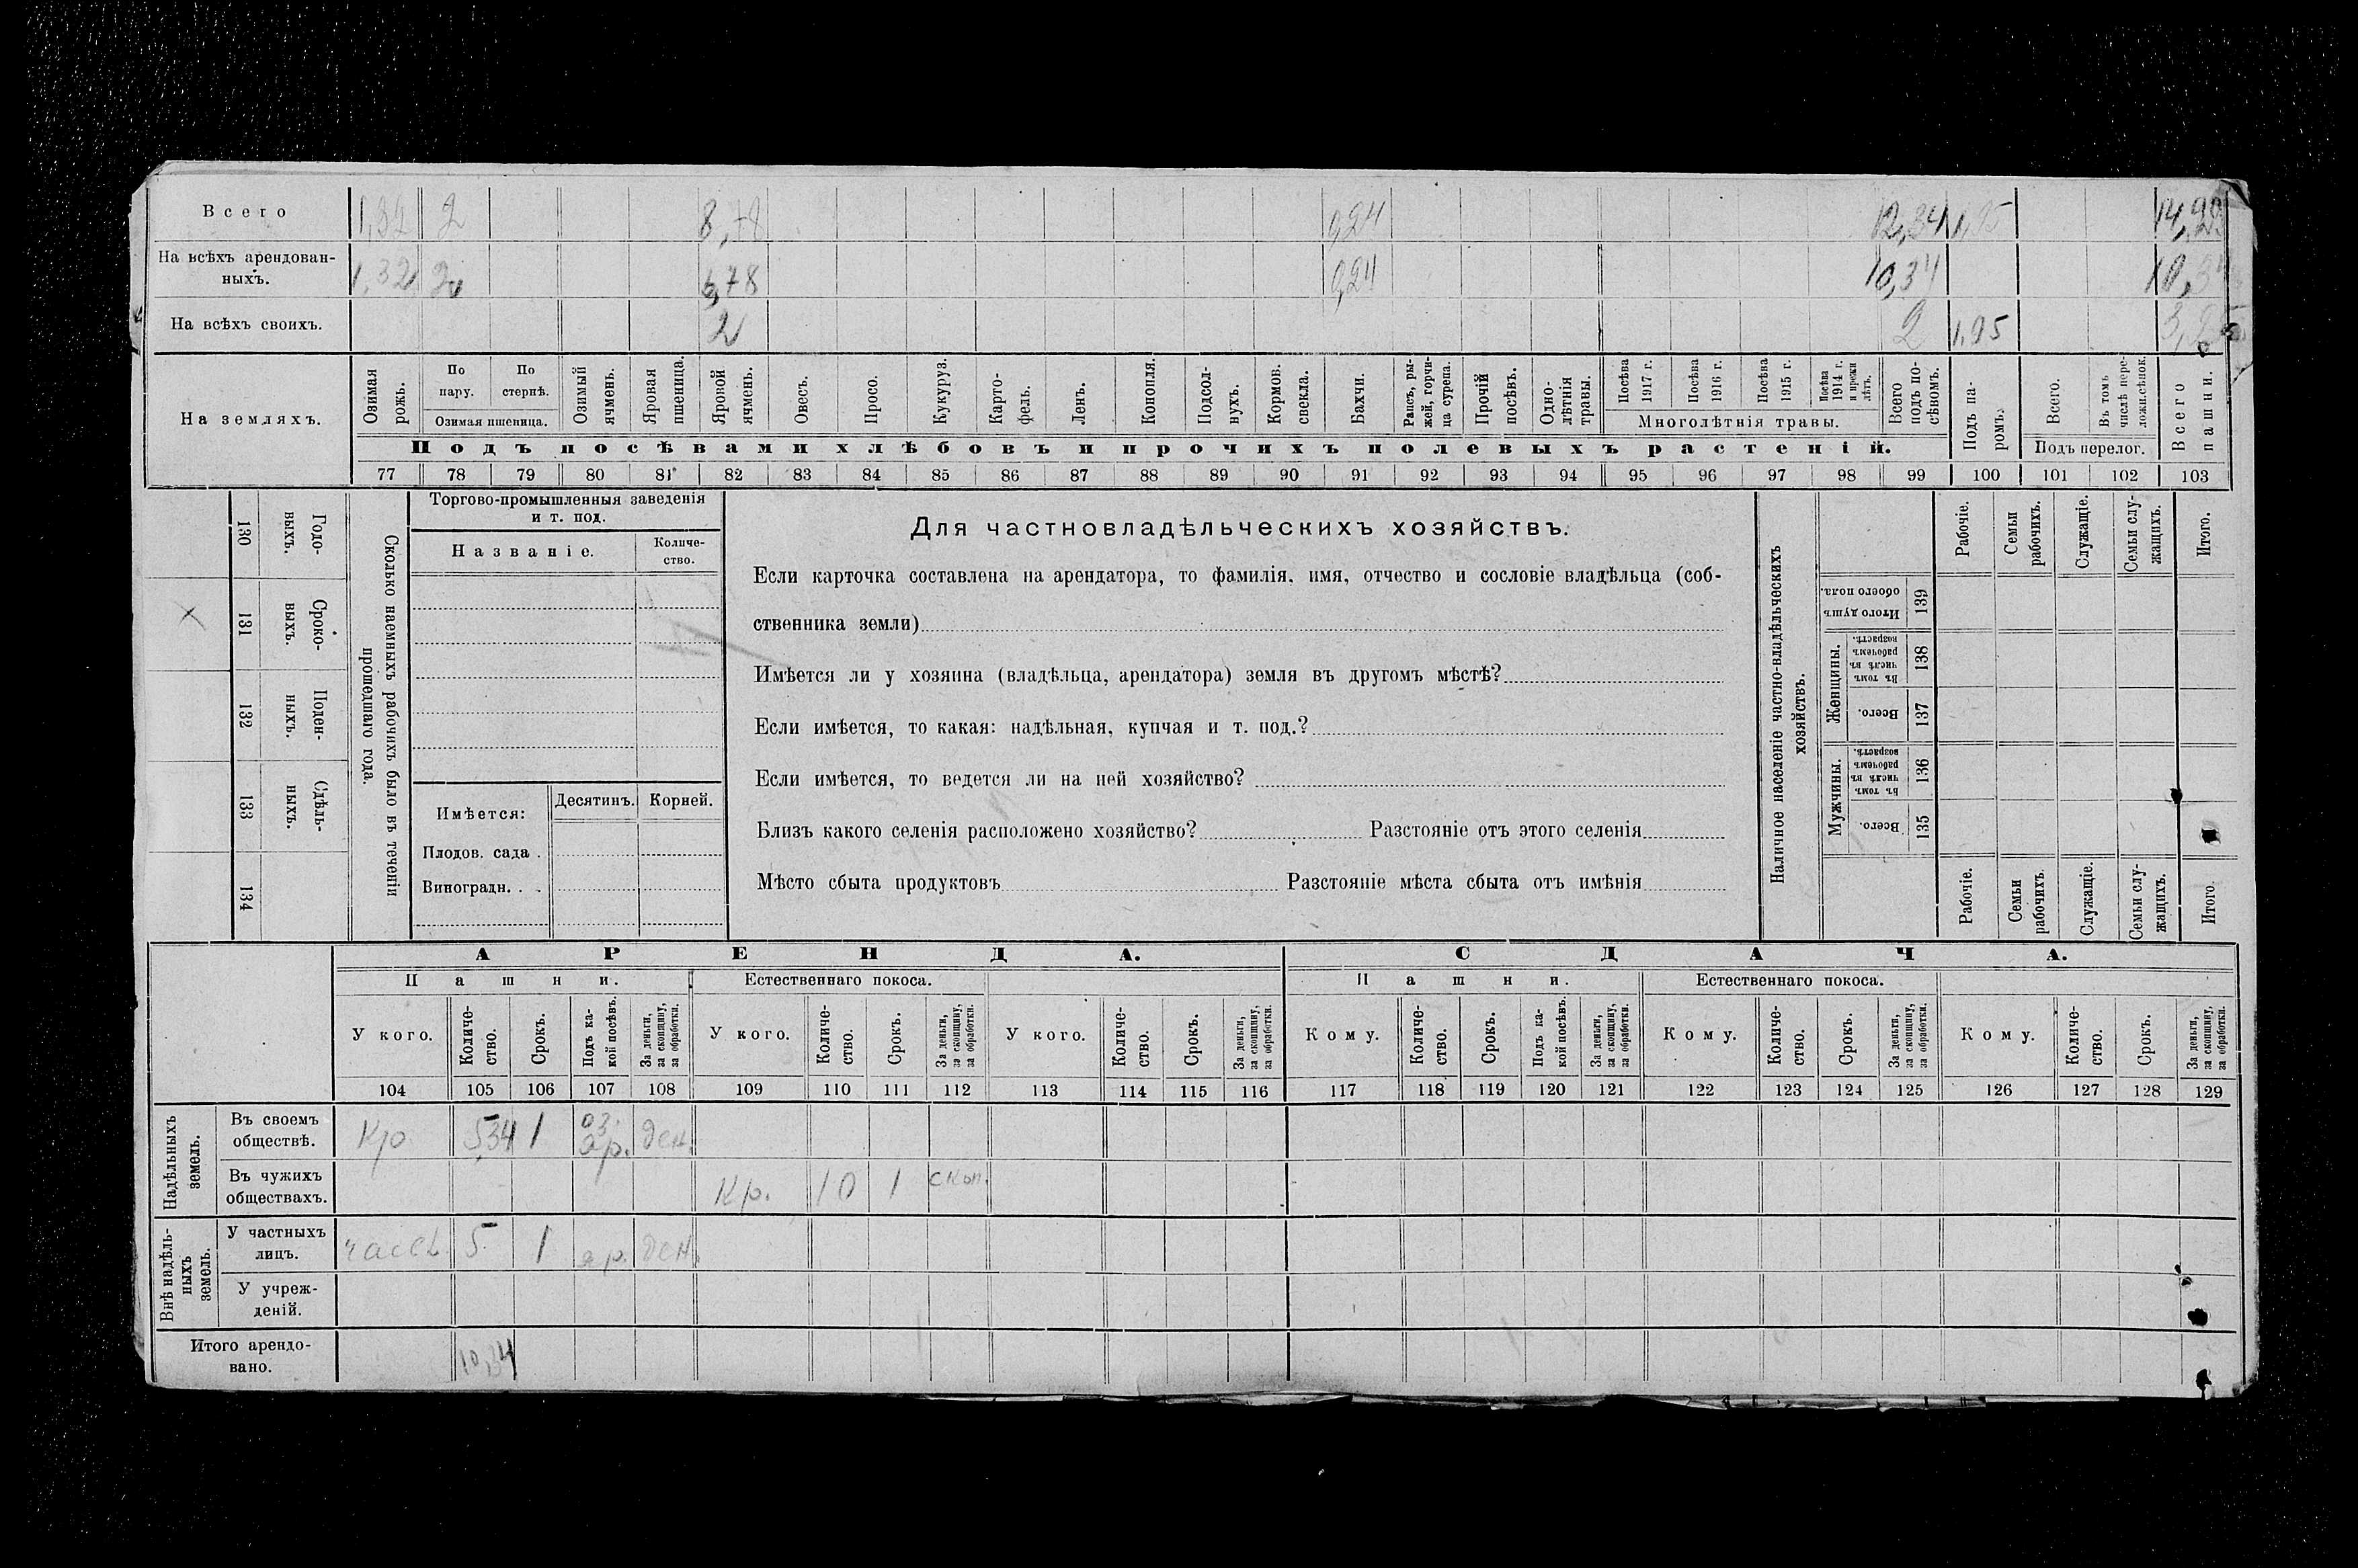 Всего 1,32 2 8,78 0,24 12,34 1,25
На всѣхъ арендован-
ныхъ. 1,32 2 6,78 0,24 10,34
На всѣхъ своихъ. 2 2 1,25
На земляхъ.
Озимая рожь.
По пару.
По стернѣ.
Озимая пшеница.
Озимый ячмень.
Яровая пшеница.
Яровой ячмень.
Овесъ.
Просо.
Кукуруз.
Карто-
фель.
Ленъ.
Конопля.
Подсол-
нухъ.
Кормов.
свекла.
Бахчи.
Рапсъ, ры-
жей, горчи-
ца сурепа.
Прочій
посѣвъ.
Одно-
лѣтнія
травы.
Посѣва
1917 г.
Посѣва
1916 г.
Посѣва
1915 г.
Посѣва
1914 г.
и прежн
лѣтъ.
Многолѣтнія травы.
Всего
подъ по-
сѣвомъ.
Подъ посѣвами хлѣбовъ и прочихъ полевыхъ растеній.
Подъ па-
ромъ.
Всего.
Въ томъ
числѣ пере-
ложн.сѣнок.
Подъ перелог.
Всего
пашни.
77 78 79 80 81 82 83 84 85 86 87 88 89 90 91 92 93 94 95 96 97 98 99 100 101 102 103
Сколько наемныхъ рабочихъ было въ теченіи
прошедшаго года.
Годо-
выхъ.
130
Сроко-
выхъ.
131
Поден-
ныхъ.
132
Сдѣль-
ныхъ.
133
134
Торгово-промышленныя заведенія
и т. под.
Названіе.
Количе-
ство.
Имѣется: Десятинъ. Корней.
Плодов. сада .
Виноградн. . .
Для частновладѣльческихъ хозяйствъ.
Если карточка составлена на арендатора, то фамилія, имя, отчество и сословіе владѣльца (соб-
ственника земли)
Имѣется ли у хозяина (владѣльца, арендатора) земля въ другомъ мѣстѣ?
Если имѣется, то какая: надѣльная, купчая и т. под.?
Если имѣется, то ведется ли на ней хозяйство?
Близъ какого селенія расположено хозяйство? Разстояніе отъ этого селенія
Мѣсто сбыта продуктовъ Разстояніе мѣста сбыта отъ имѣнія
Наличное населеніе частно-владѣльческихъ
хозяйствъ.
Рабочіе.
Семьи
рабочихъ.
Служащіе.
Семьи слу-
жащихъ.
Итого.
Итого душъ
обоего пола.
139
Женщины.
Въ томъ
числѣ въ
рабочемъ
возрастѣ.
138
Всего.
137
Мужчины.
Въ томъ
числѣ въ
рабочемъ
возрастѣ.
136
Всего.
135
Рабочіе.
Семьи
рабочихъ.
Служащіе.
Семьи слу-
жащихъ.
Итого.
АРЕНДА. СДАЧА.
Пашни. Естественнаго покоса. Пашни. Естественнаго покоса.
У кого.
Количе-
ство.
Срокъ.
Подъ ка-
кой посѣвъ.
За деньги,
за скопщину,
за обработки.
У кого.
Количе-
ство.
Срокъ.
За деньги,
за скопщину,
за обработки.
У кого.
Количе-
ство.
Срокъ.
За деньги,
за скопщину,
за обработки.
Кому.
Количе-
ство.
Срокъ.
Подъ ка-
кой посѣвъ.
За деньги,
за скопщину,
за обработки.
Кому.
Количе-
ство.
Срокъ.
За деньги,
за скопщину,
за обработки.
Кому.
Количе-
ство.
Срокъ.
За деньги,
за скопщину,
за обработки.
104 105 106 107 108 109 110 111 112 113 114 115 116 117 118 119 120 121 122 123 124 125 126 127 128 129
Надѣльныхъ
земель.
Въ своемъ
обществѣ. Кр. 5,34 1 оз. яр. ден.
Въ чужихъ
обществахъ. Кр. 10 1 скоп.
Внѣ надѣль-
ныхъ
земель.
У частныхъ
лицъ. 5 1 яр. ден.
У учреж-
деній.
Итого арендо-
вано. 10,34